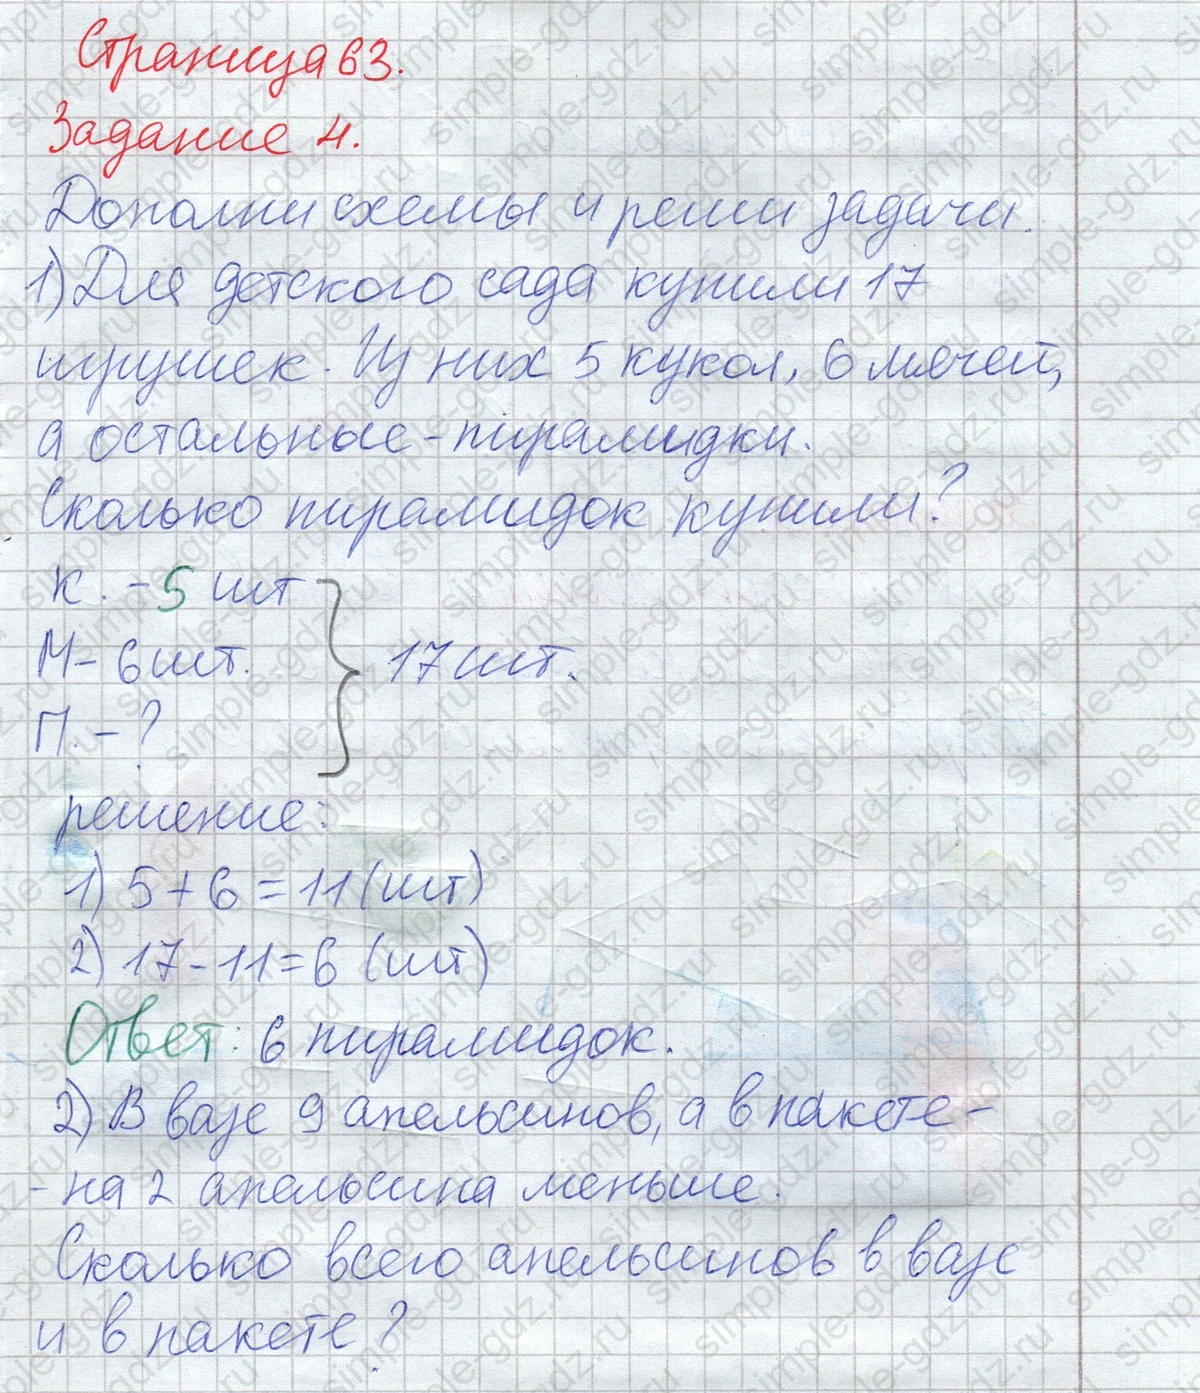 Страница 63.
Задание 4.
Дополни схемы и реши задачи.
1) Для детского сада купили 17
игрушек. Из них 5 кукол, 6 мячей,
а остальные - пирамидки.
Сколько пирамидок купили?
К. - 5 шт
М - 6 шт.
17 шт.
П. - ?
решение:
1) 5 + 6 = 11 (шт)
2) 17 - 11 = 6 (шт)
Ответ: 6 пирамидок.
2) В вазе 9 апельсинов, а в пакете -
- на 2 апельсина меньше.
Сколько всего апельсинов в вазе
и в пакете?
simple-gdz.ru